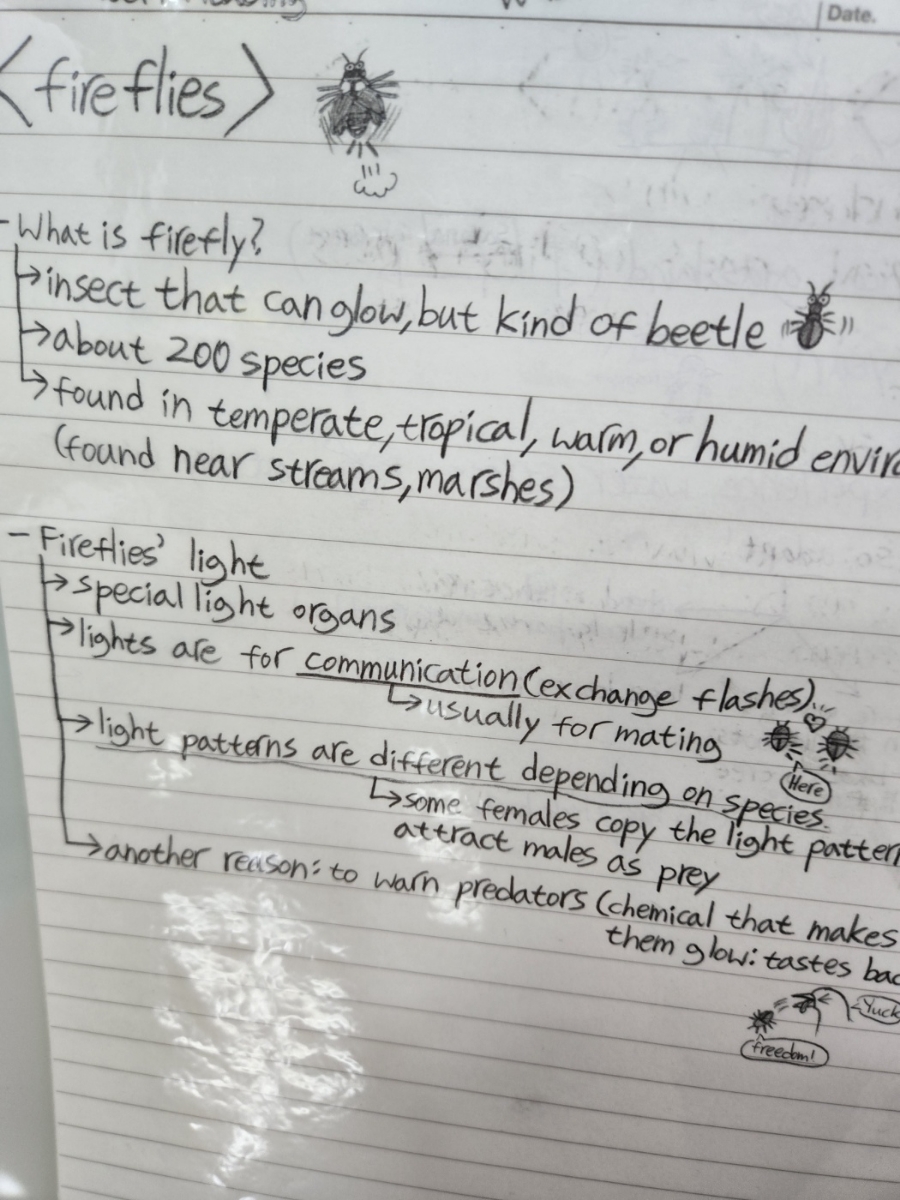 Date.
<fireflies>
- What is firefly?
→ insect that can glow, but kind of beetle
→ about 200 species
→ found in temperate, tropical, warm, or humid
(found near streams, marshes)
- Fireflies' light
→ special light organs
→ lights are for communication (exchange flashes)...
↳ usually for mating
Here
→ light patterns are different depending on species.
↳ some females copy the light
attract males as prey
→ another reason: to warn predators (chemical that makes
them glow: tastes
Yuck
freedom!